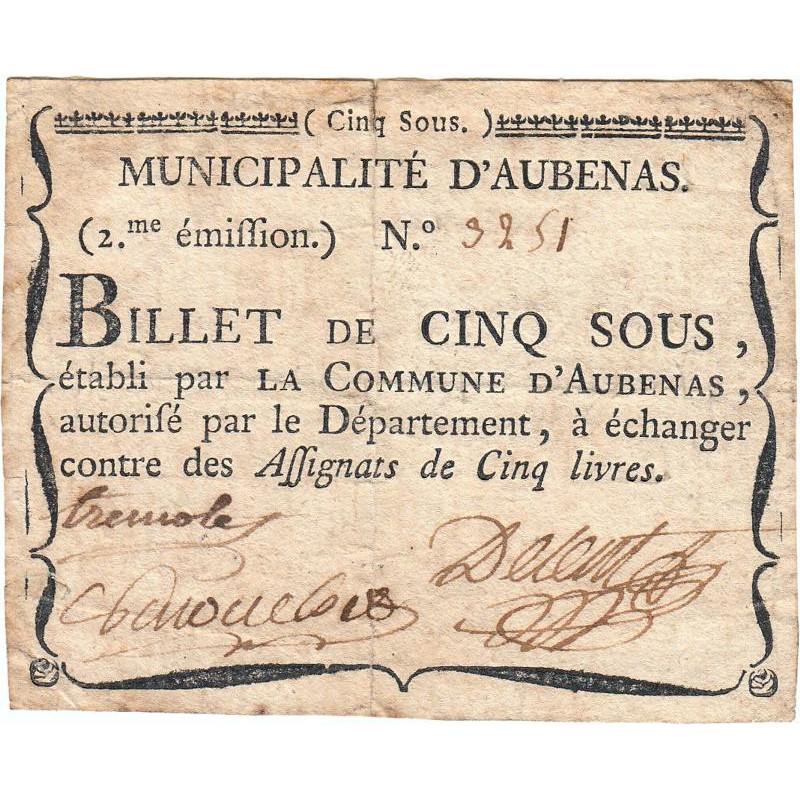 ( Cinq Sous. )
MUNICIPALITÉ D'AUBENAS.
(2.me émiſſion.) N.o 3251
BILLET DE CINQ SOUS,
établi par LA COMMUNE D'AUBENAS,
autoriſé par le Département, à échanger
contre des Aſſignats de Cinq livres.